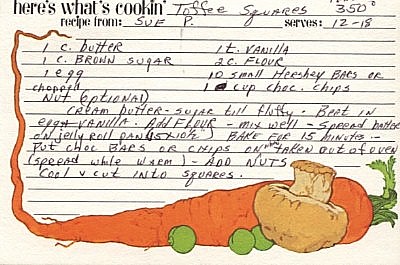 here's what's cookin' Toffee Squares 350°
recipe from: SUE P. serves: 12-18
1 c. butter 1 t. VANILLA
1 C. BROWN SUGAR 2 C. FLOUR
1 egg 10 small Heeshey BARS or
chopped 1 cup choc. chips
NUT (optional)
CREAM butter - sugar till fluffy. Beat in
egg + VANILLA. Add FLOUR - mix well - Spread batter
on jelly roll pan (15x10½") BAKE FOR 15 minutes -
Put choc BARS OR chips ON when TAKEN OUT of oven
(spread while warm) - ADD NUTS
Cool & cut into squares.